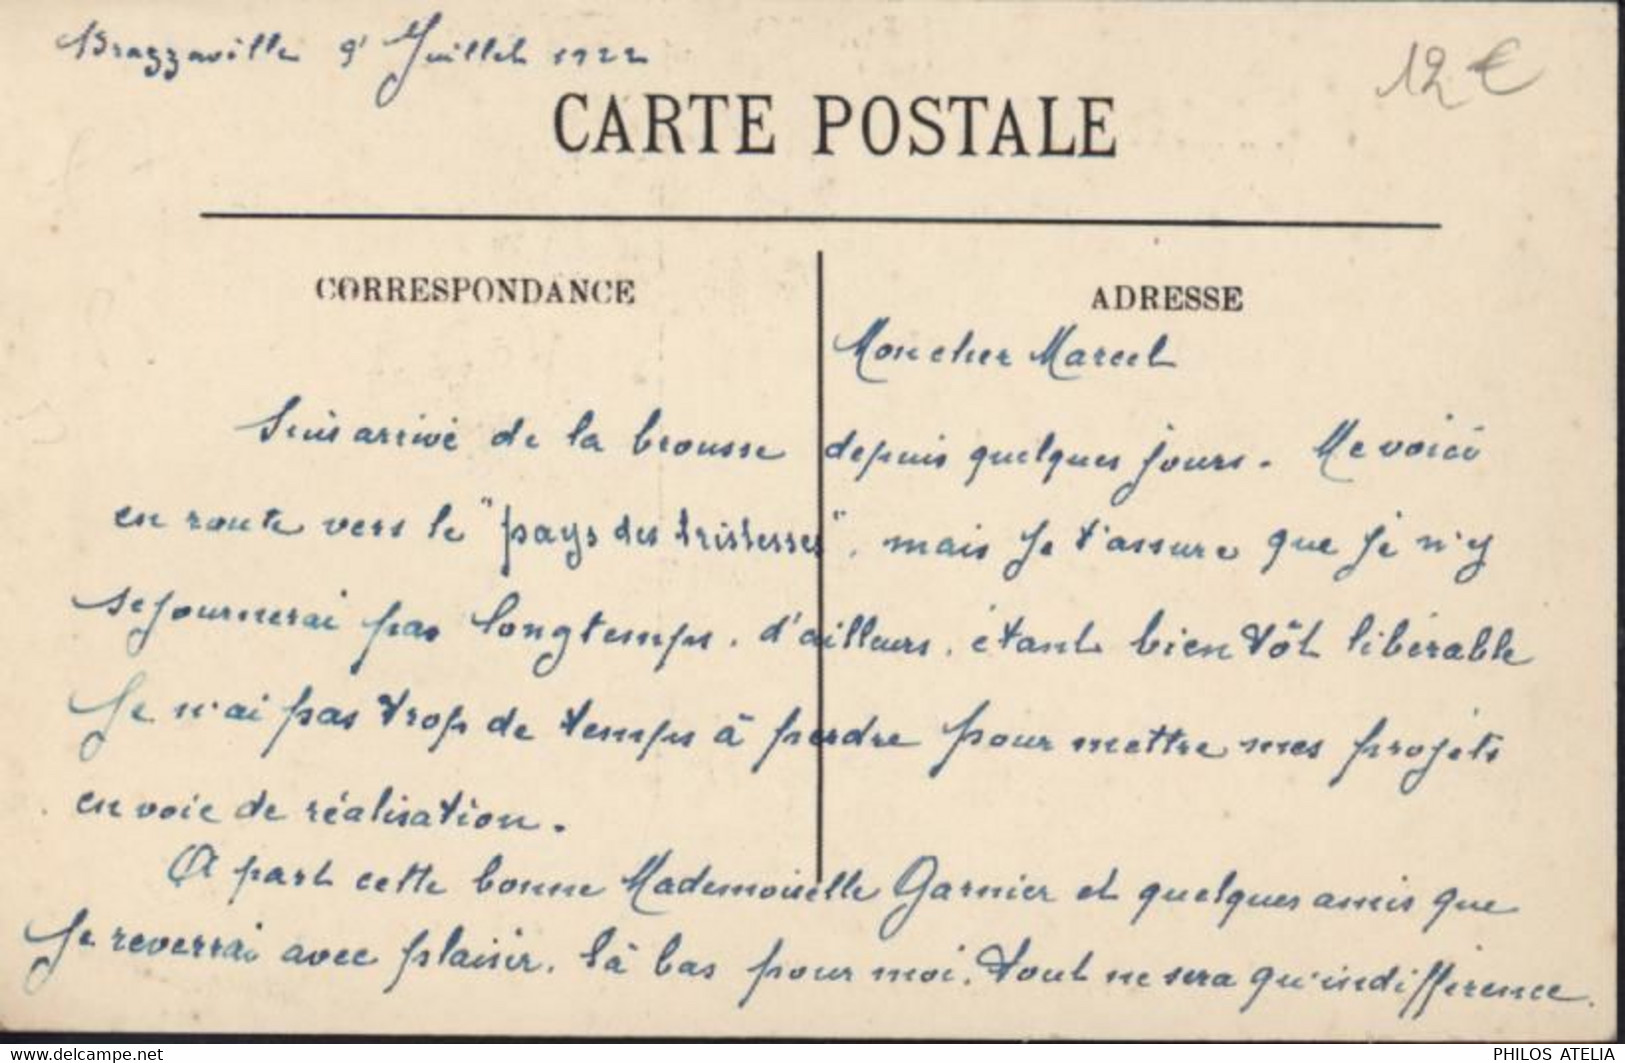 Brazzaville 9 Juillet 1922
12 €
CARTE POSTALE
CORRESPONDANCE
ADRESSE
Mon cher Marcel
Suis arrivé de la brousse depuis quelques jours. Me voici
en route vers le "pays des tristesses", mais je t'assure que je n'y
sejournerai pas longtemps. d'ailleurs, étant bientôt libérable
Je n'ai pas trop de temps à perdre pour mettre mes projets
en voie de réalisation.
A part cette bonne Mademoiselle Garnier et quelques amis que
Je reverrai avec plaisir, là bas pour moi, tout ne sera qu'indifférence.
www.delcampe.net
PHILOS ATELIA